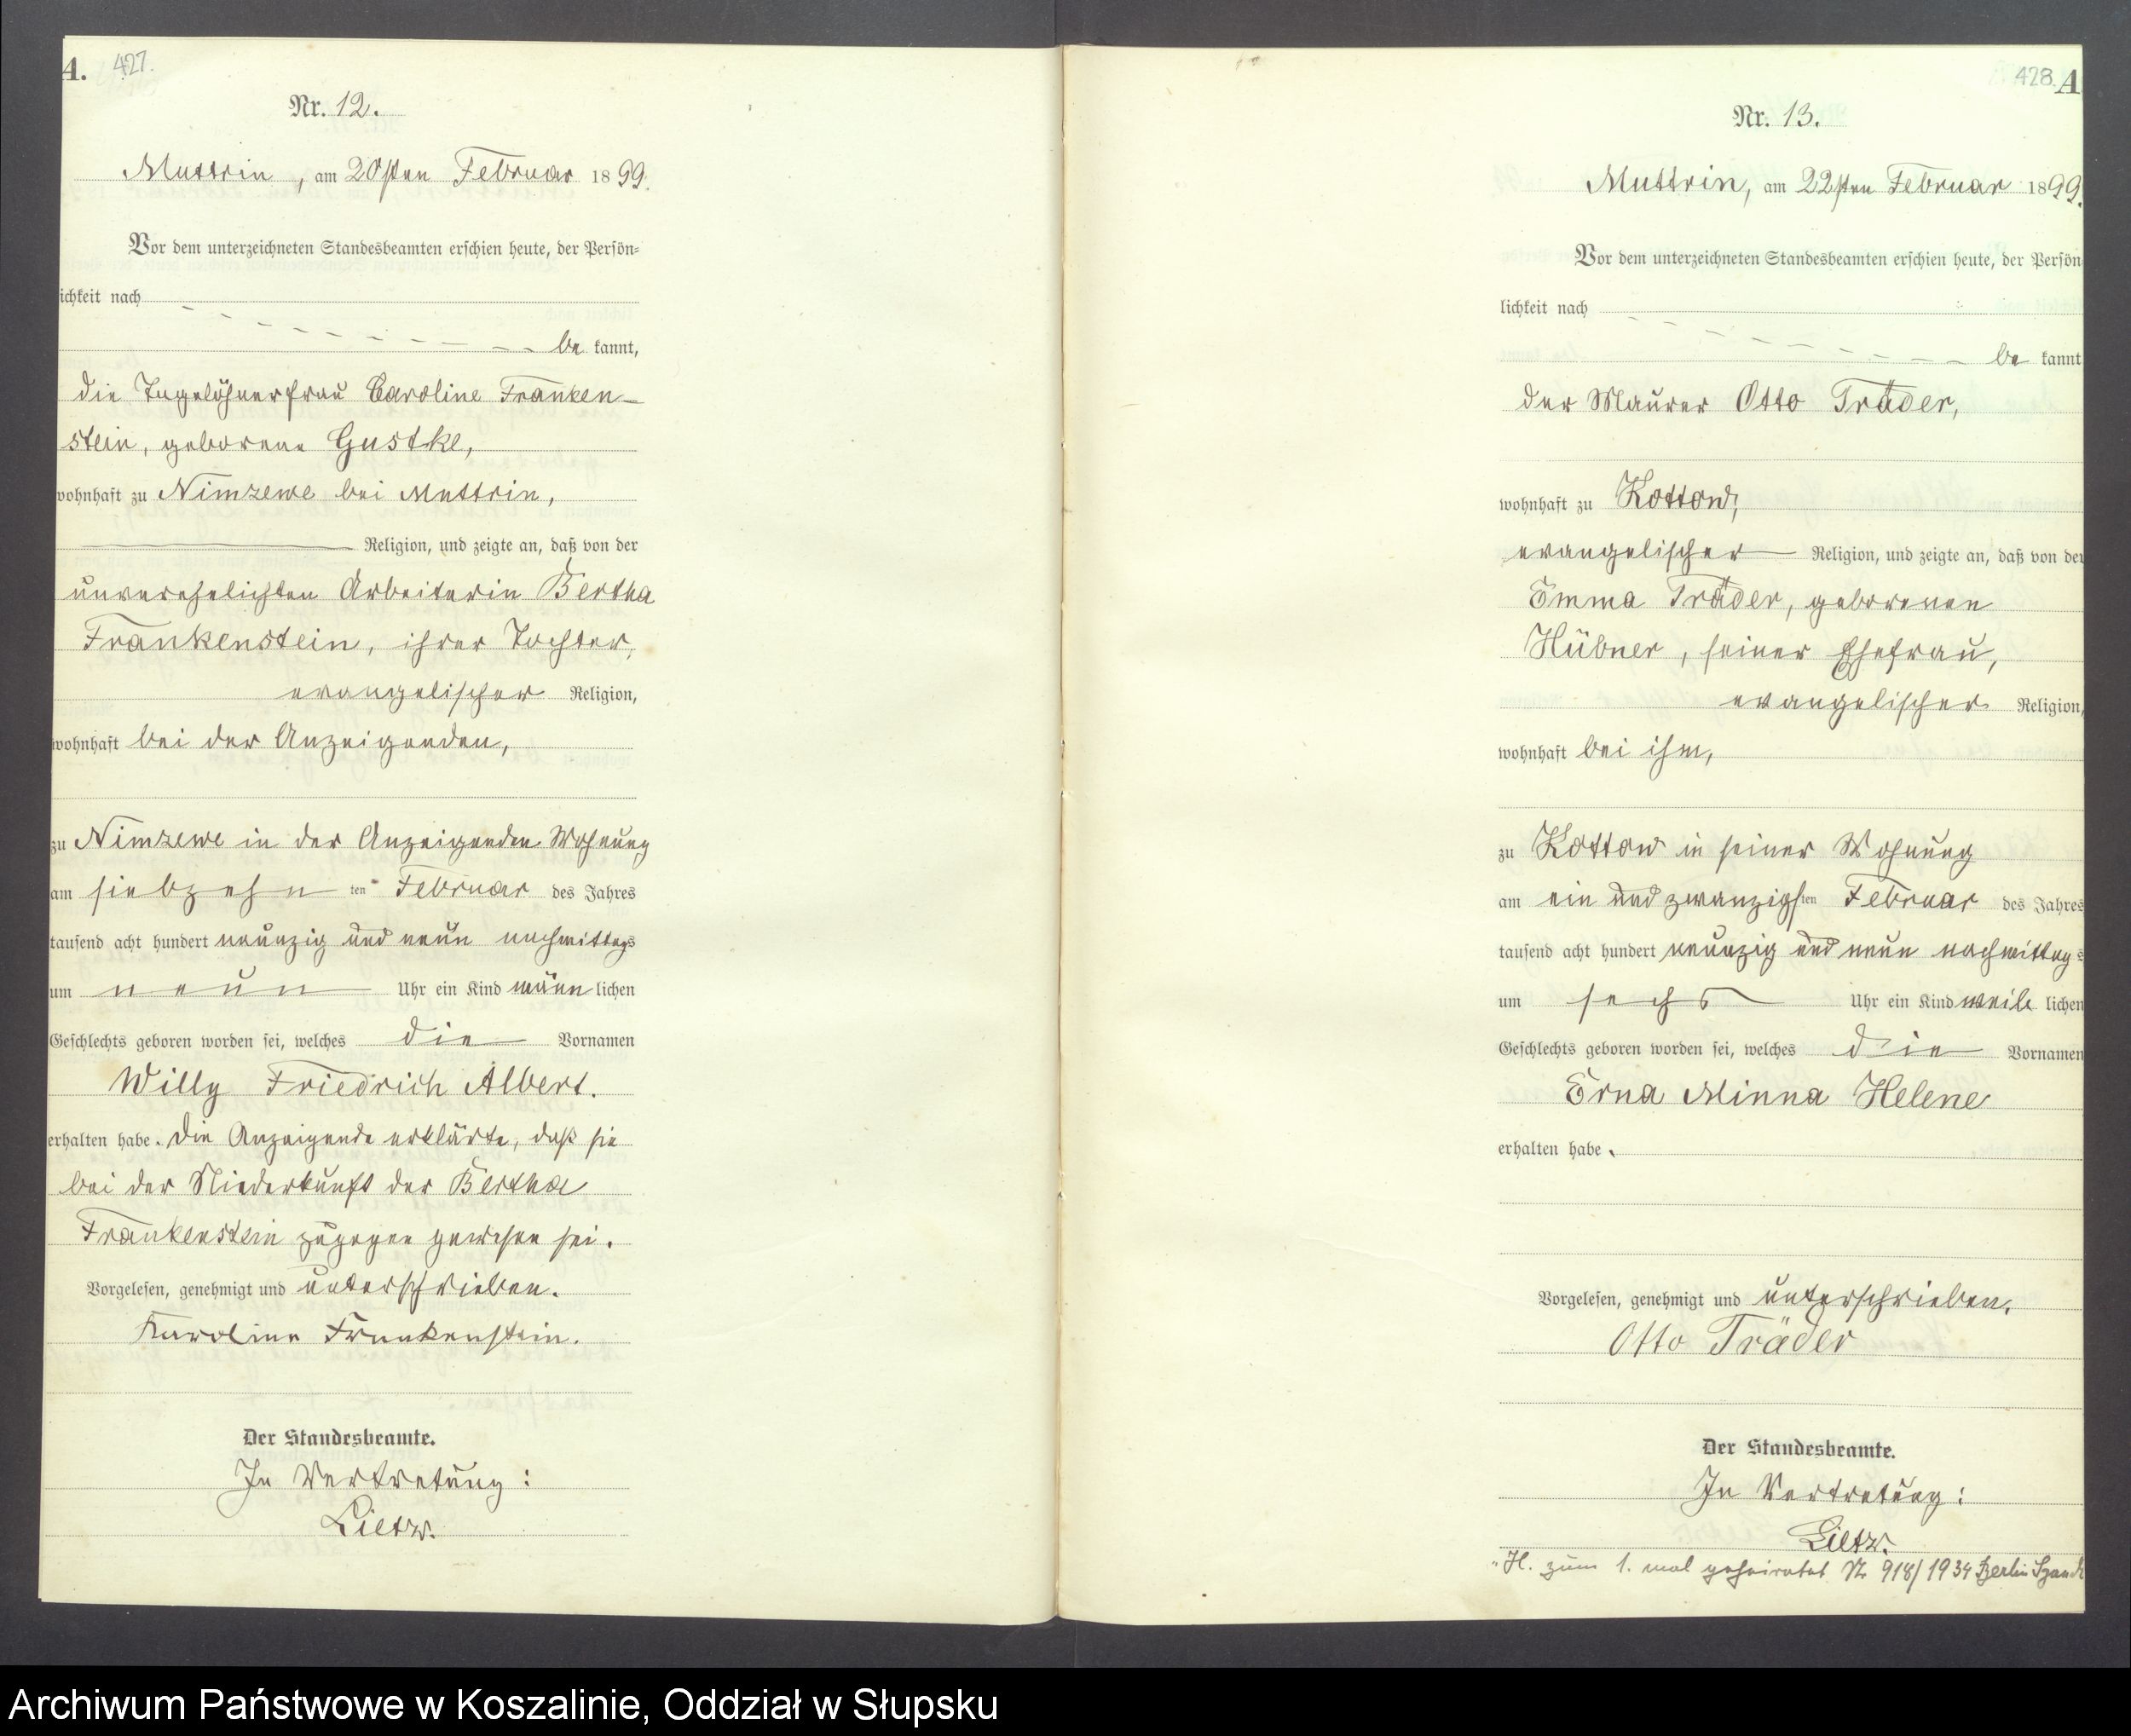 A. 427.
Nr. 12.
Muttrin, am 20sten Februar 1899.
Vor dem unterzeichneten Standesbeamten erschien heute, der Persön-
lichkeit nach
be kannt,
die Tagelöhnerfrau Caroline Franken-
stein, geborene Gustke,
wohnhaft zu Nimzewe bei Muttrin,
Religion, und zeigte an, daß von der
unverehelichten Arbeiterin Bertha
Frankenstein, ihrer Tochter,
evangelischer Religion,
wohnhaft bei der Anzeigenden,
zu Nimzewe in der Anzeigenden Wohnung
am siebzehn ten Februar des Jahres
tausend acht hundert neunzig und neun nachmittags
um neun Uhr ein Kind männ lichen
Geschlechts geboren worden sei, welches die Vornamen
Willy Friedrich Albert.
erhalten habe. Die Anzeigende erklärte, daß sie
bei der Niederkunft der Bertha
Frankenstein zugegen gewesen sei.
Vorgelesen, genehmigt und unterschrieben.
Karoline Frankenstein.
Der Standesbeamte.
In Vertretung:
Lietz.
428. A
Nr. 13.
Muttrin, am 22sten Februar 1899.
Vor dem unterzeichneten Standesbeamten erschien heute, der Persön
lichkeit nach
be kannt
der Maurer Otto Träder,
wohnhaft zu Kottow,
evangelischer Religion, und zeigte an, daß von der
Emma Träder, geborenen
Hübner, seiner Ehefrau,
evangelischer Religion,
wohnhaft bei ihm,
zu Kottow in seiner Wohnung
am ein und zwanzigsten Februar des Jahres
tausend acht hundert neunzig und neun nachmittags
um sechs Uhr ein Kind weib lichen
Geschlechts geboren worden sei, welches die Vornamen
Erna Minna Helene
erhalten habe.
Vorgelesen, genehmigt und unterschrieben.
Otto Träder
Der Standesbeamte.
In Vertretung:
Lietz.
H. zum 1. mal geheiratet Nr 918/1934 Berlin Spand
Archiwum Państwowe w Koszalinie, Oddział w Słupsku